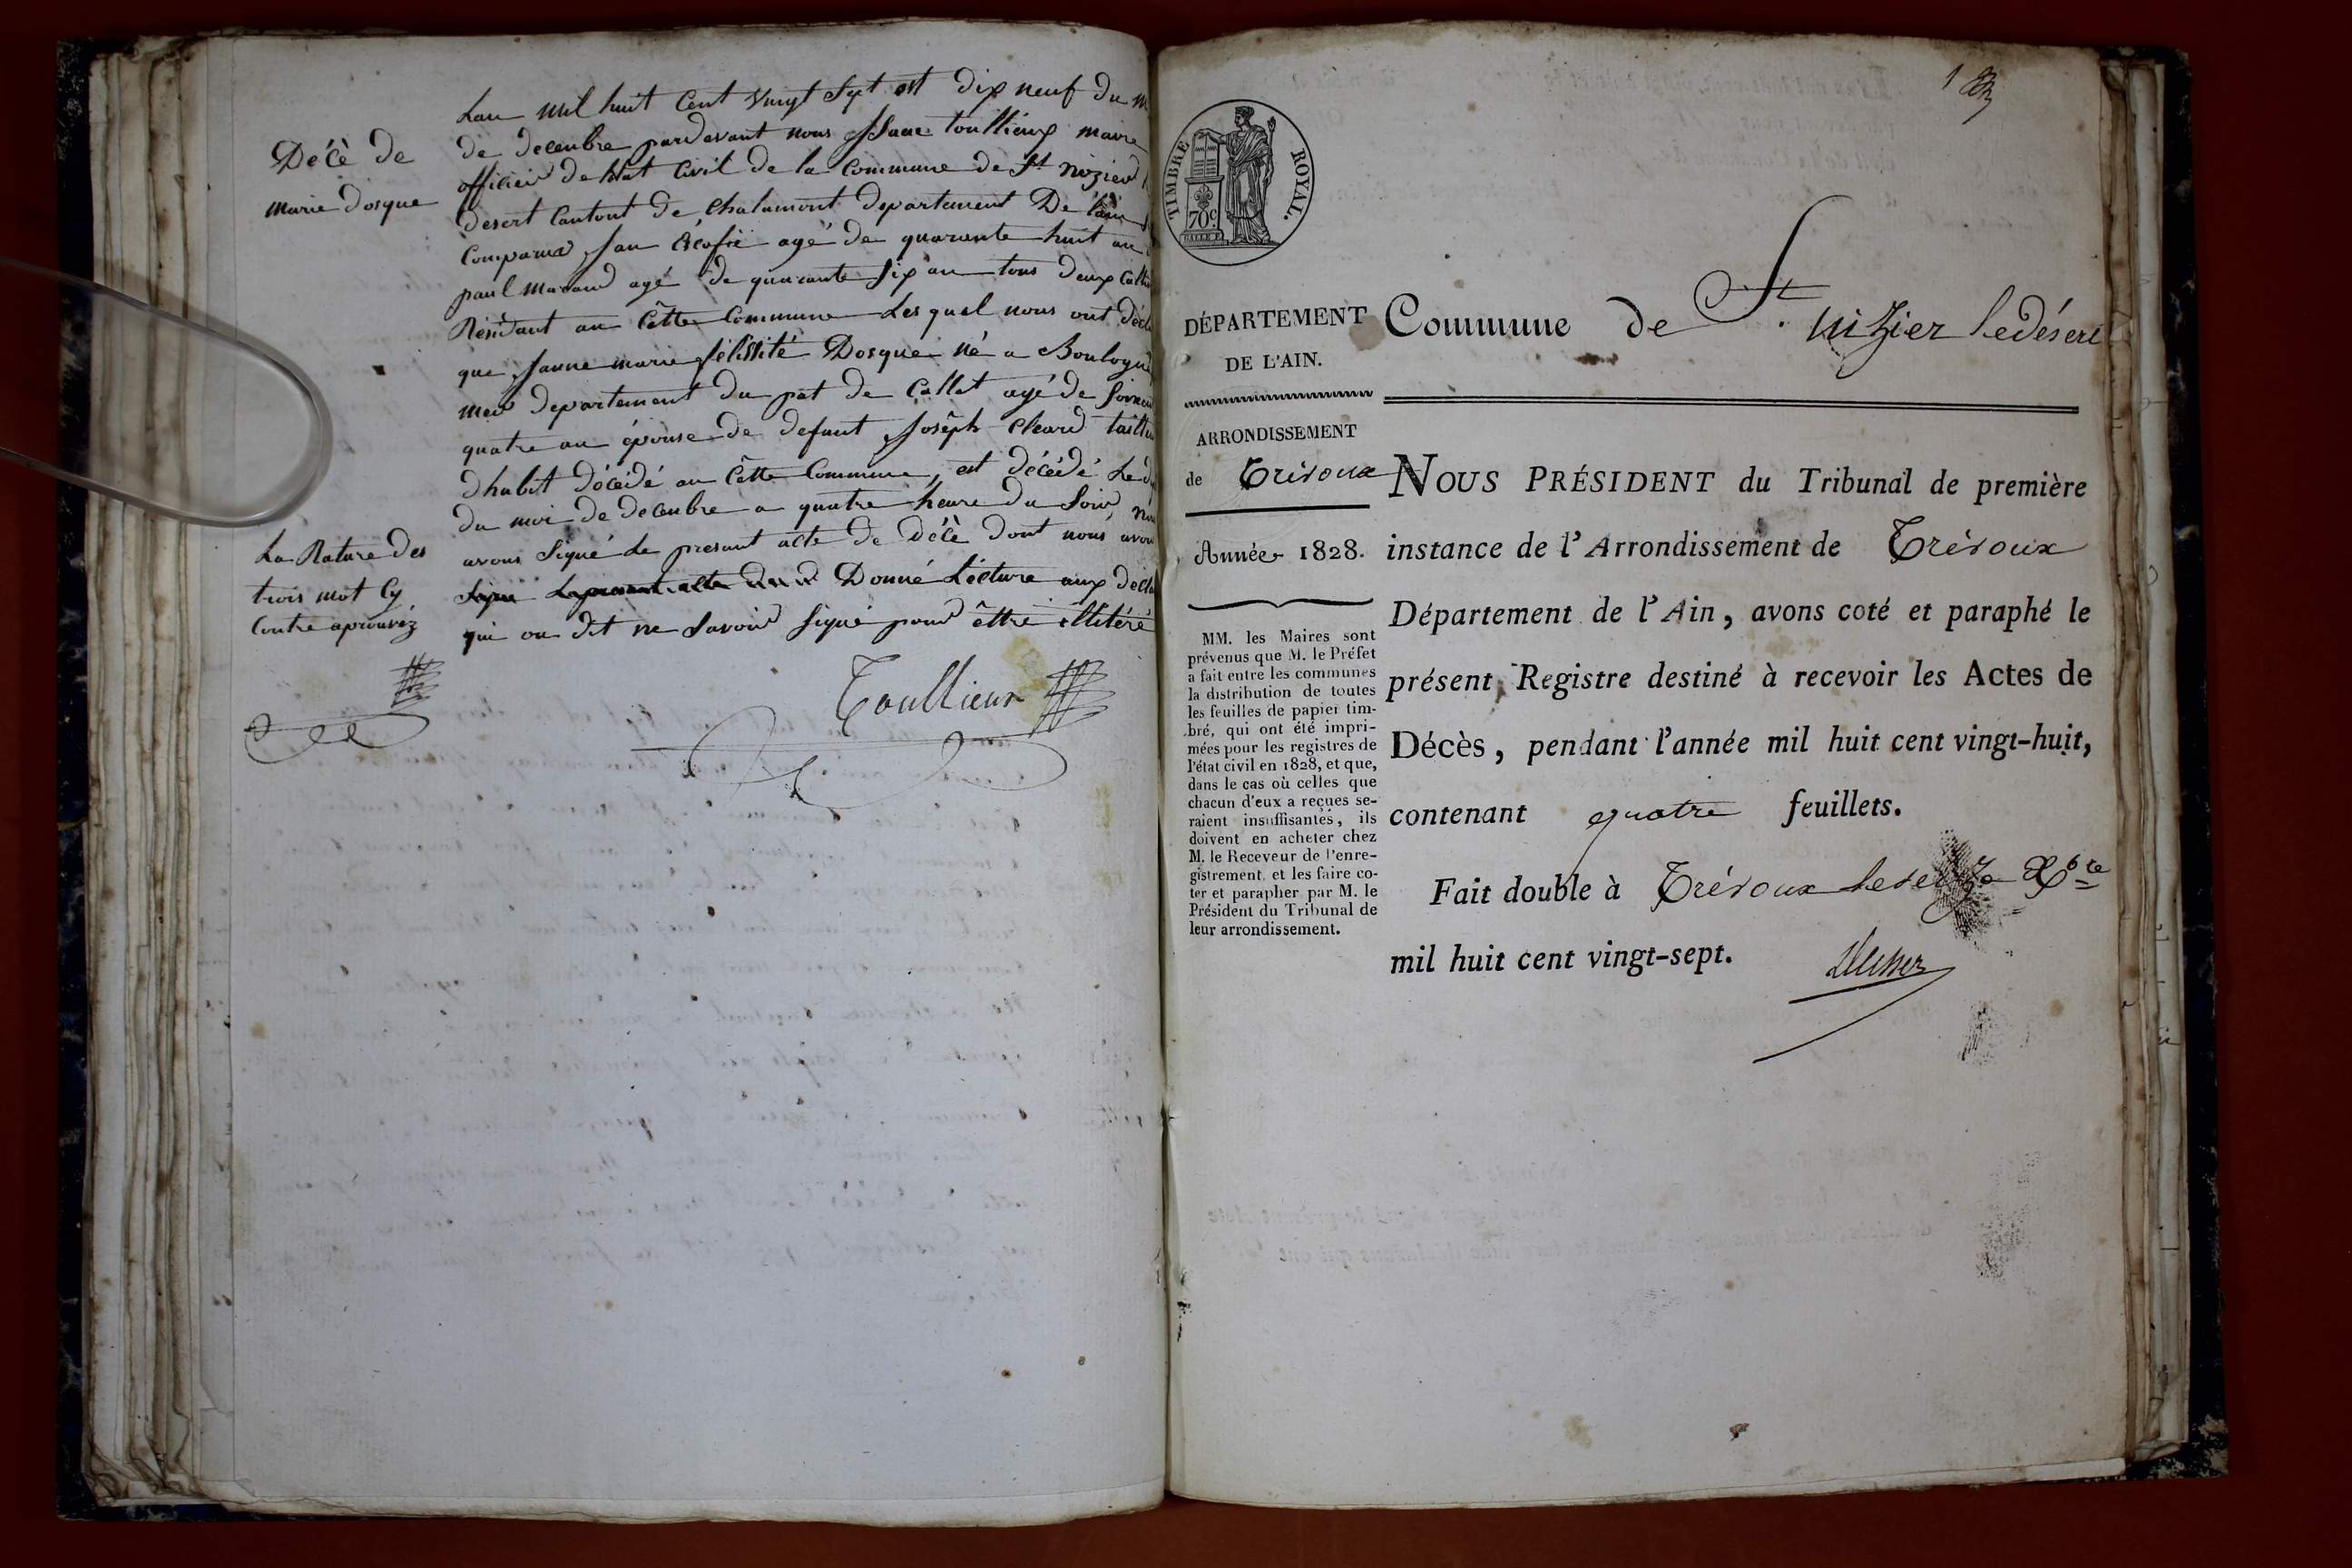 Décè de
marie dosque
Lan mil huit Cent vingt Sept est dix neuf du
de decenbre pardevant nous toullieux maire
officier de letat Civil de la Commune de St nizier
desert Cantont de Chalamont departement De lain
Comparud Jan agé de quarante huit an
paul agé de quarante six an tous deux
Résidant an Cette Commune Les quel nous ont
que Janne marie félissité Dosque né a Boulogne
departement du pat de Callet agé de
quatre an épouse de defunt Joseph Cleard
dhabit décédé an Cette Commune, est décédé Le
du moi de decenbre a quatre heure du Soir,
avons Signé Le presant acte de Décè dont nous avon
Donné Lécture aux
qui on dit ne Savoir signé pour être illitéré
La Rature des
trois mot Cy
Contre aprouvéz
Toullieux
1
TIMBRE ROYAL.
70c
DÉPARTEMENT
DE L'AIN.
ARRONDISSEMENT
de Trévoux
Année 1828.
MM. les Maires sont
prévenus que M. le Préfet
a fait entre les communes
la distribution de toutes
les feuilles de papier tim-
bré, qui ont été impri-
mées pour les registres de
l'état civil en 1828, et que,
dans le cas où celles que
chacun d'eux a reçues se-
raient insuffisantes, ils
doivent en acheter chez
M. le Receveur de l'enre-
gistrement, et les faire co-
ter et parapher par M. le
Président du Tribunal de
leur arrondissement.
Commune de St. nizier ledésert
NOUS PRÉSIDENT du Tribunal de première
instance de l'Arrondissement de Trévoux
Département de l'Ain, avons coté et paraphé le
présent Registre destiné à recevoir les Actes de
Décès, pendant l'année mil huit cent vingt-huit,
contenant quatre feuillets.
Fait double à Trévoux le Xbre
mil huit cent vingt-sept.